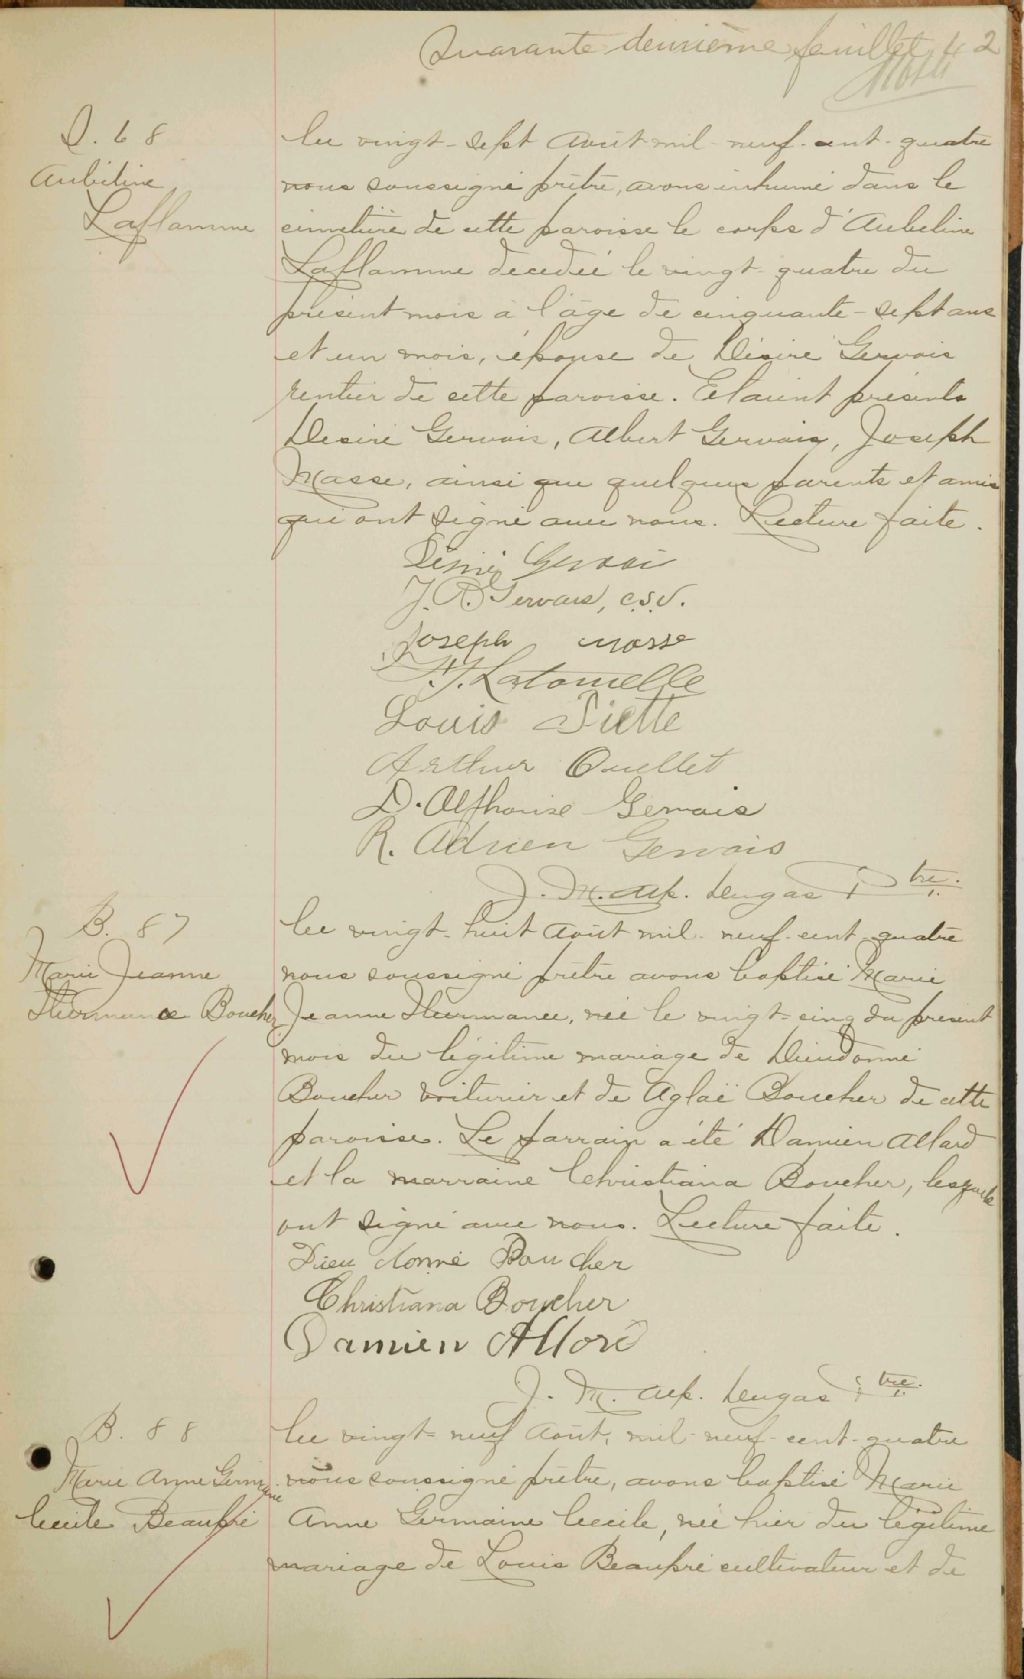 Quarante deuxième feuillet 42
S. 68
Aubéline
Laflamme
Ce vingt-sept Août mil-neuf-cent-quatre
nous soussigné prêtre, avons inhumé dans le
cimetière de cette paroisse le corps d'Aubeline
Laflamme décédée le vingt-quatre du
présent mois à l'âge de cinquante-sept ans
et un mois, épouse de Désiré Gervais
rentier de cette paroisse. Etaient présents
Désiré Gervais, Albert Gervais, Joseph
Masse, ainsi que quelques parents et amis
qui ont signé avec nous. Lecture faite.
Gervai
J. A. Gervais, c.s.v.
Joseph masse
Latourelle
Louis Piette
Arthur Ouellet
D. Alphonse Gervais
R. Adrien Gervais
J. M. Alp. Dugas Ptre.
B. 87
Marie Jeanne
Hermance Boucher
Ce vingt-huit Août mil-neuf-cent-quatre
nous soussigné prêtre avons baptisé Marie
Jeanne Hermance, née le vingt-cinq du présent
mois du légitime mariage de Dieudonné
Boucher voiturier et de Aglaé Boucher de cette
paroisse. Le parrain a été Damien Allard
et la marraine Christiana Boucher, lesquels
ont signé avec nous. Lecture faite.
Dieu donné Boucher
Christiana Boucher
Damien Allard
J. M. Alp. Dugas Ptre.
B. 88
Marie Anne Germaine
Cecile Beaupré
Ce vingt-neuf Août, mil-neuf-cent-quatre
nous soussigné prêtre, avons baptisé Marie
Anne Germaine Cecile, née hier du légitime
mariage de Louis Beaupré cultivateur et de